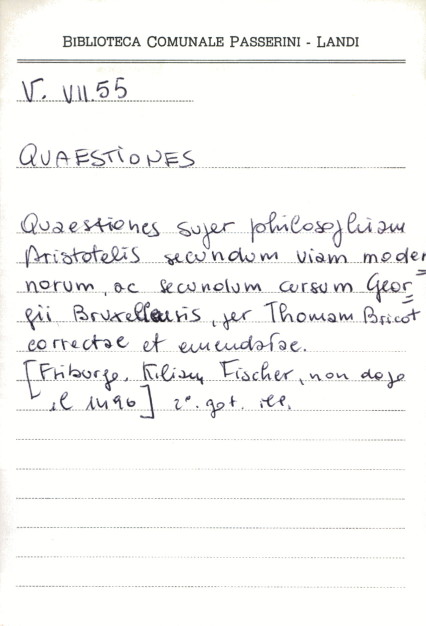 BIBLIOTECA COMUNALE PASSERINI - LANDI
V. VII.55
QUAESTIONES
Quaestiones super philosophiam
Aristotelis secundum viam moder=
norum, ac secundum cursum Geor=
gii Bruxellensis, per Thomam Bricot
correctae et emendatae.
[Friburgo, Kilian Fischer, non dopo
il 1496] 2°. got. ill.